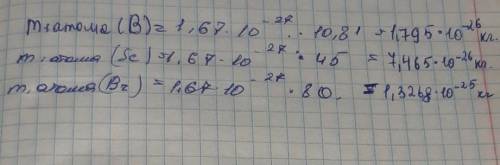 m.атома (B) = 1,67 · 10⁻²⁷ · 10,81 = 1,795 · 10⁻²⁶ кг.
m. атома (Sc) = 1,67 · 10⁻²⁷ · 45 = 7,465 · 10⁻²⁶ кг.
m. атома (Br) = 1,67 · 10⁻²⁷ · 80 = 1,3268 · 10⁻²⁵ кг